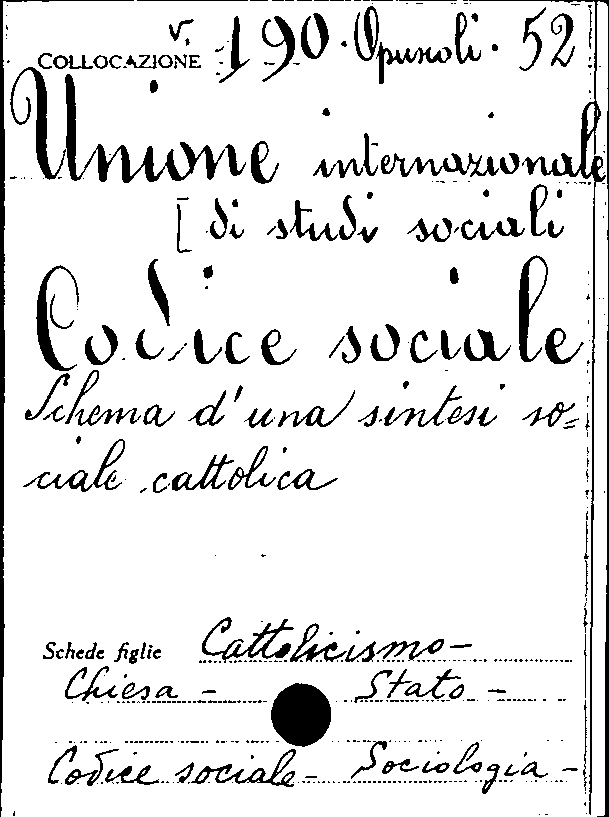 COLLOCAZIONE v. 190. Opuscoli. 52
Unione internazionale
[ di studi sociali
Codice sociale
Schema d'una sintesi so=
ciale cattolica
Schede figlie Cattolicismo-
Chiesa - Stato -
Codice sociale - Sociologia -